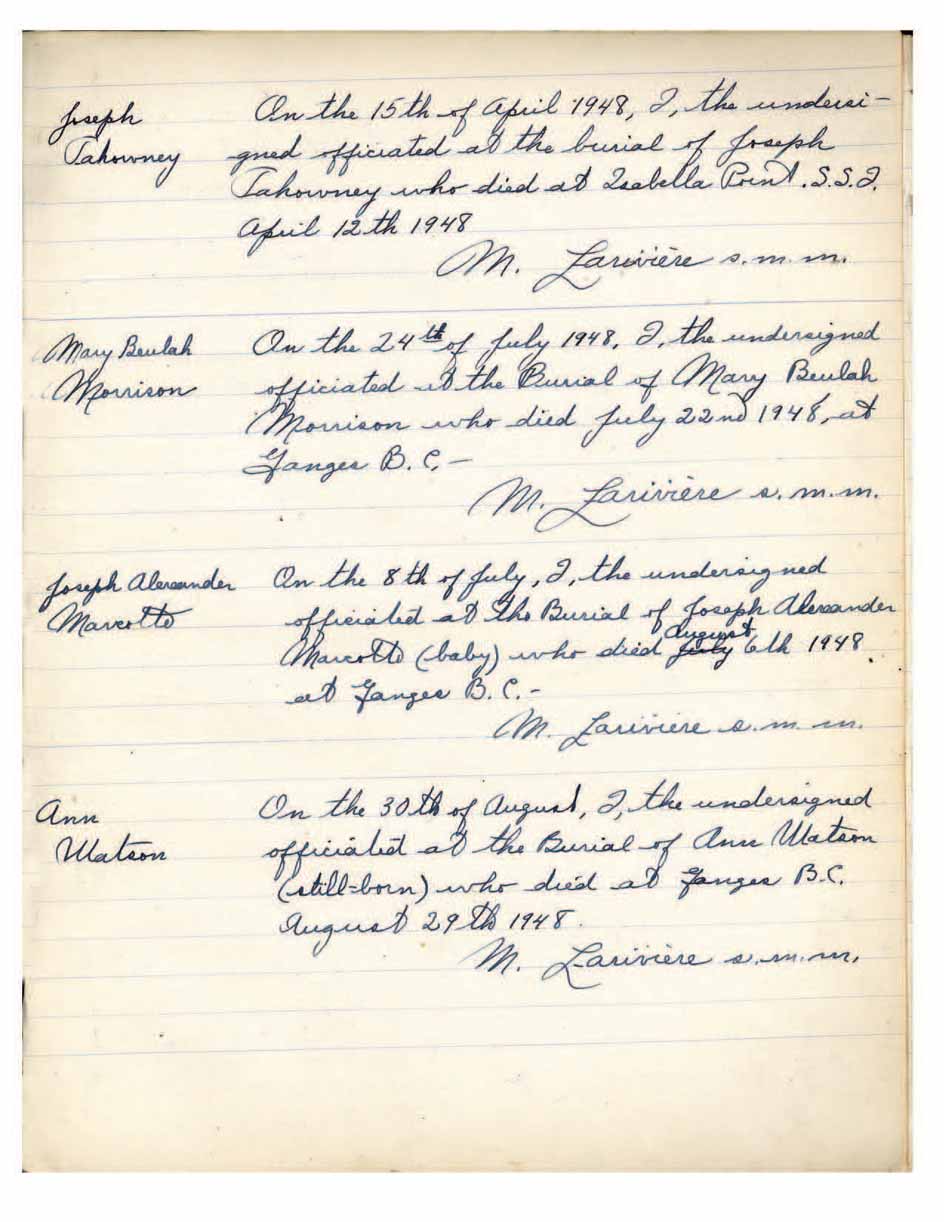 Joseph
Tahowney
On the 15th of April 1948, I, the undersi-
gned officiated at the burial of Joseph
Tahowney who died at Isabella Point. S.S.I.
April 12th 1948
M. Larivière s.m.m.
Mary Beulah
Morrison
On the 24th of July 1948, I, the undersigned
officiated at the Burial of Mary Beulah
Morrison who died July 22nd 1948, at
Ganges B.C. -
M. Larivière s.m.m.
Joseph Alexander
Marcotte
On the 8th of July, I, the undersigned
officiated at the Burial of Joseph Alexander
August
Marcotte (baby) who died July 6th 1948
at Ganges B.C. -
M. Larivière s.m.m.
Ann
Watson
On the 30th of August, I, the undersigned
officiated at the Burial of Ann Watson
(still=born) who died at Ganges B.C.
August 29th 1948.
M. Larivière s.m.m.